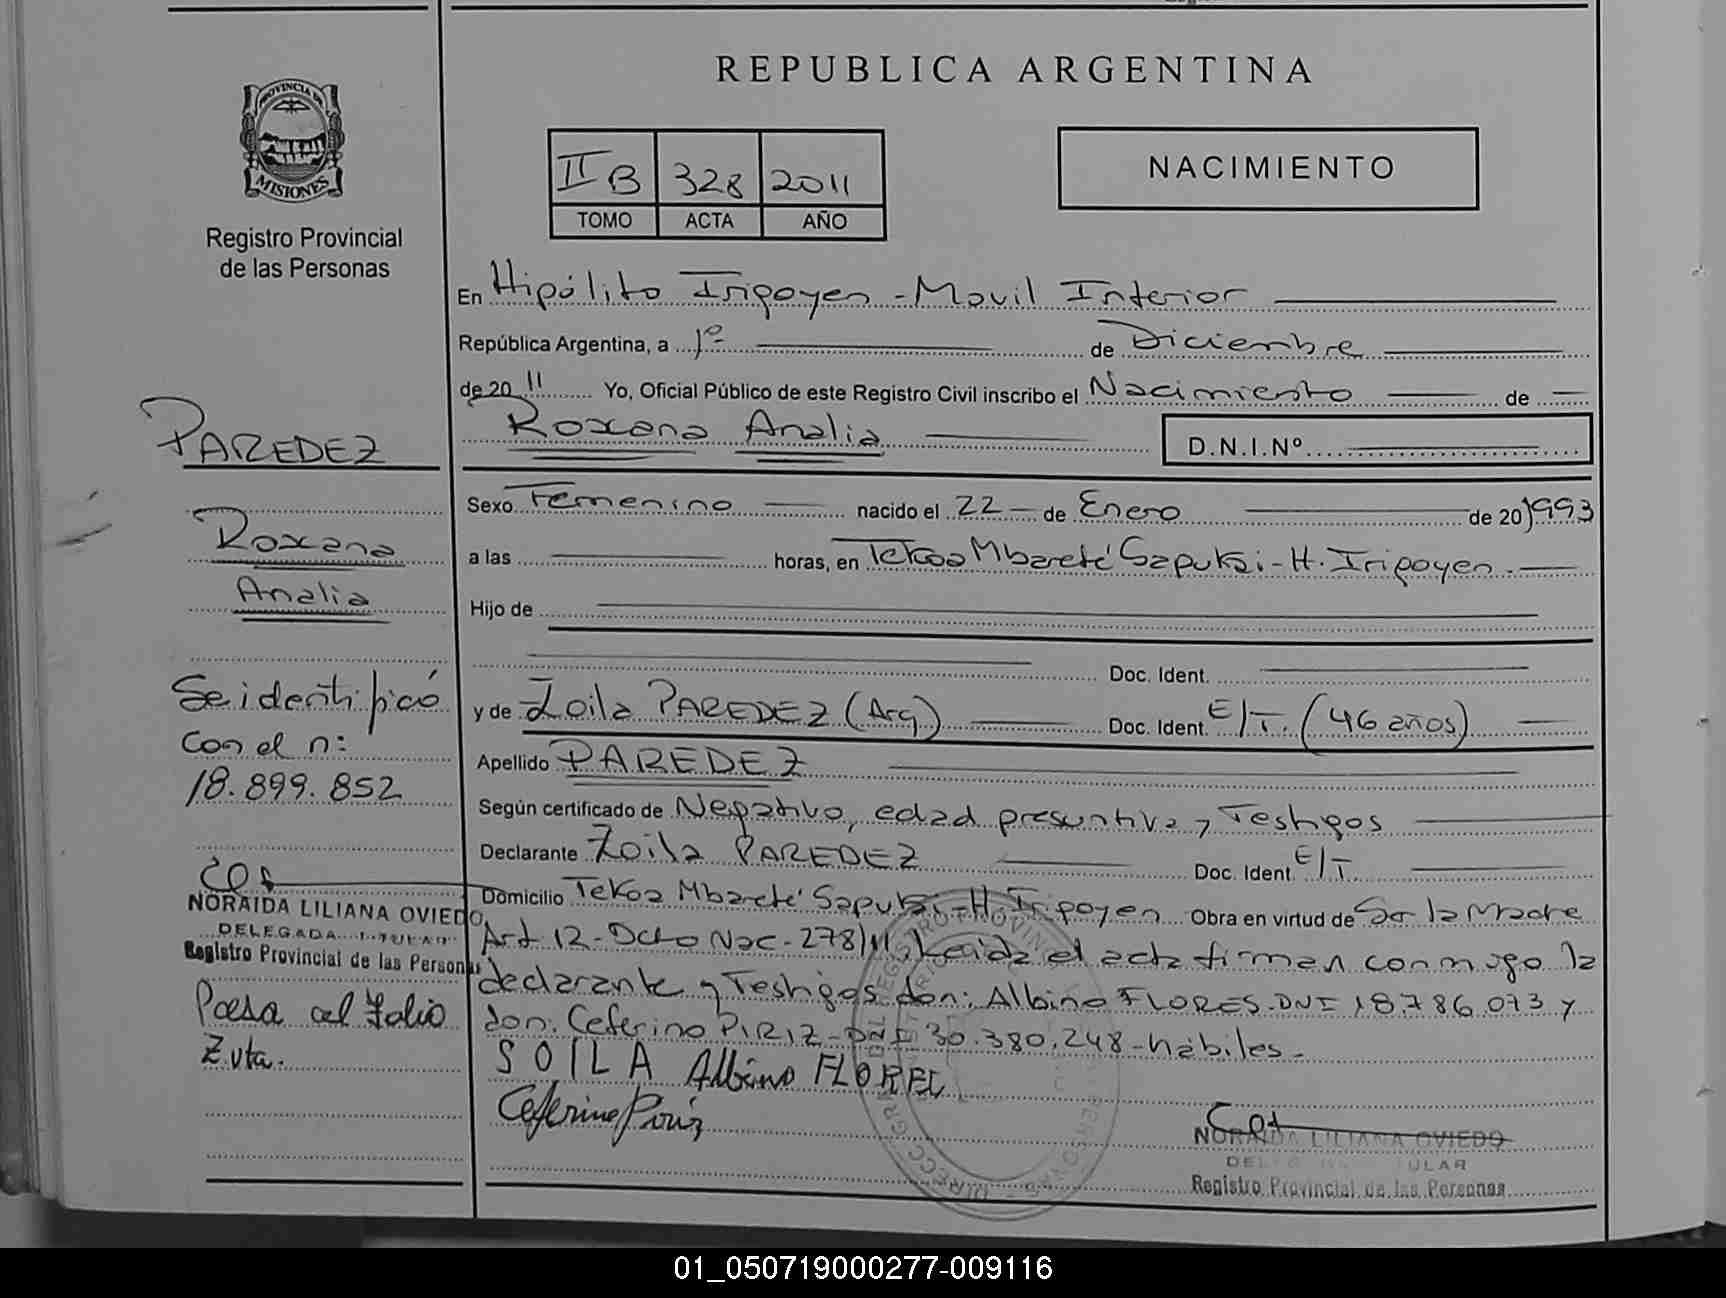 REPUBLICA ARGENTINA
PROVINCIA DE
MISIONES
Registro Provincial
de las Personas
II B 328 2011
TOMO ACTA AÑO
NACIMIENTO
En Hipólito Irigoyen - Movil Interior
República Argentina, a 1º de Diciembre
de 20 11 Yo, Oficial Público de este Registro Civil inscribo el Nacimiento de
Roxana Analia D.N.I.Nº
PAREDEZ
Roxana
Analia
Se identificó
con el n:
18.899.852
NORAIDA LILIANA OVIEDO
DELEGADA TITULAR
Registro Provincial de las Personas
Pasa al folio
Zuta.
Sexo Femenino nacido el 22 de Enero de 20 1993
a las horas, en Tekoa Mbareté Sapukai - H. Irigoyen
Hijo de
Doc. Ident.
y de Zoila PAREDEZ (Arg) Doc. Ident. E/T. (46 años)
Apellido PAREDEZ
Según certificado de Negativo, edad presuntiva y Testigos
Declarante Zoila PAREDEZ Doc. Ident. E/T.
Domicilio Tekoa Mbareté Sapukai - H. Irigoyen Obra en virtud de Ser la Madre
Art 12 - Dcto Nac - 278/11, Leida el acta firman conmigo la
declarante y Testigos don: Albino FLORES. DNI 18.786.073 y
don: Ceferino PIRIZ - DNI 30.380.248 - hábiles -
SOILA Albino FLOREL
Ceferino Piriz
NORAIDA LILIANA OVIEDO
DELEGADA TITULAR
Registro Provincial de las Personas
01_050719000277-009116